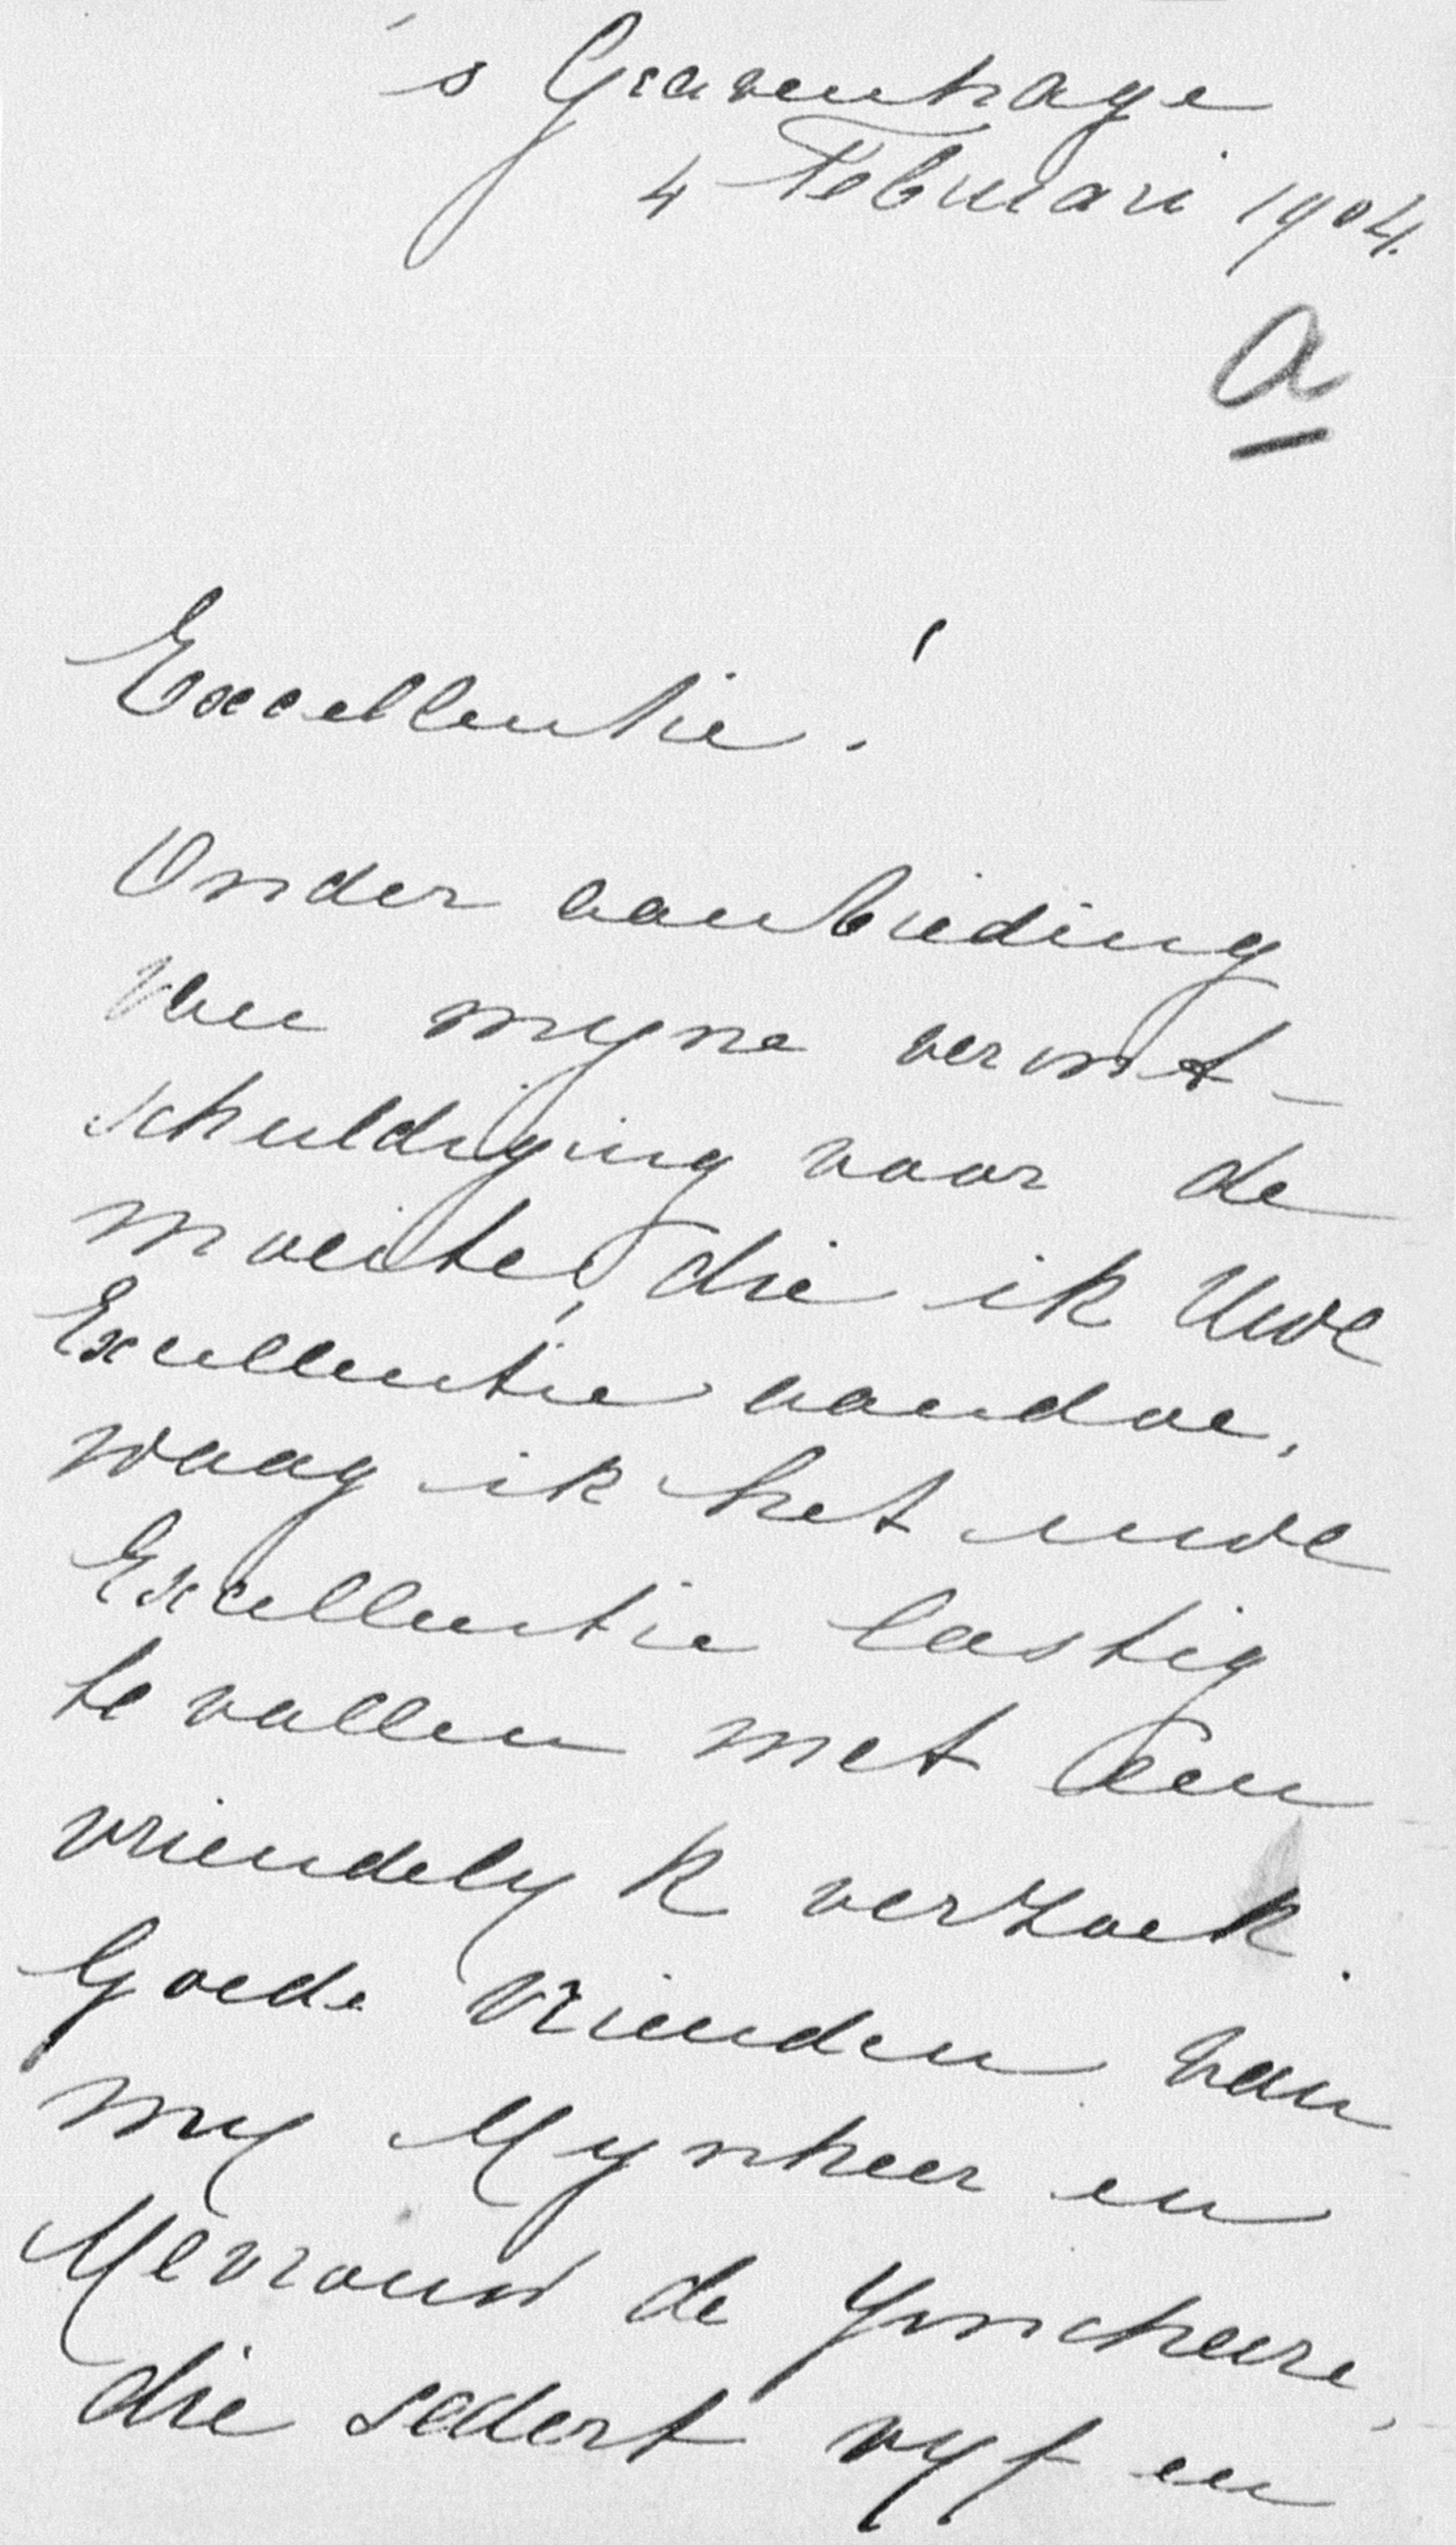 's Gravenhage
4 Februari 1904.
a
Excellentie!
Onder aanbieding
van myne veront-
schuldiging voor de
moeite, die ik Uwe
Excellentie aandoe,
waag ik het uwe
Excellentie lastig
te vallen met een
vriendelyk verzoek.
Goede vrienden van
my Mynheer en
Mevrouw de
die sedert vyf en